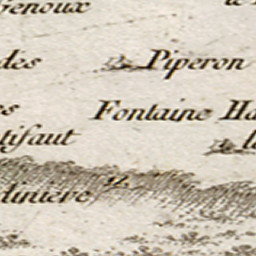 Genoux
des Piperon
es Fontaine Ha
tifaut
diniere